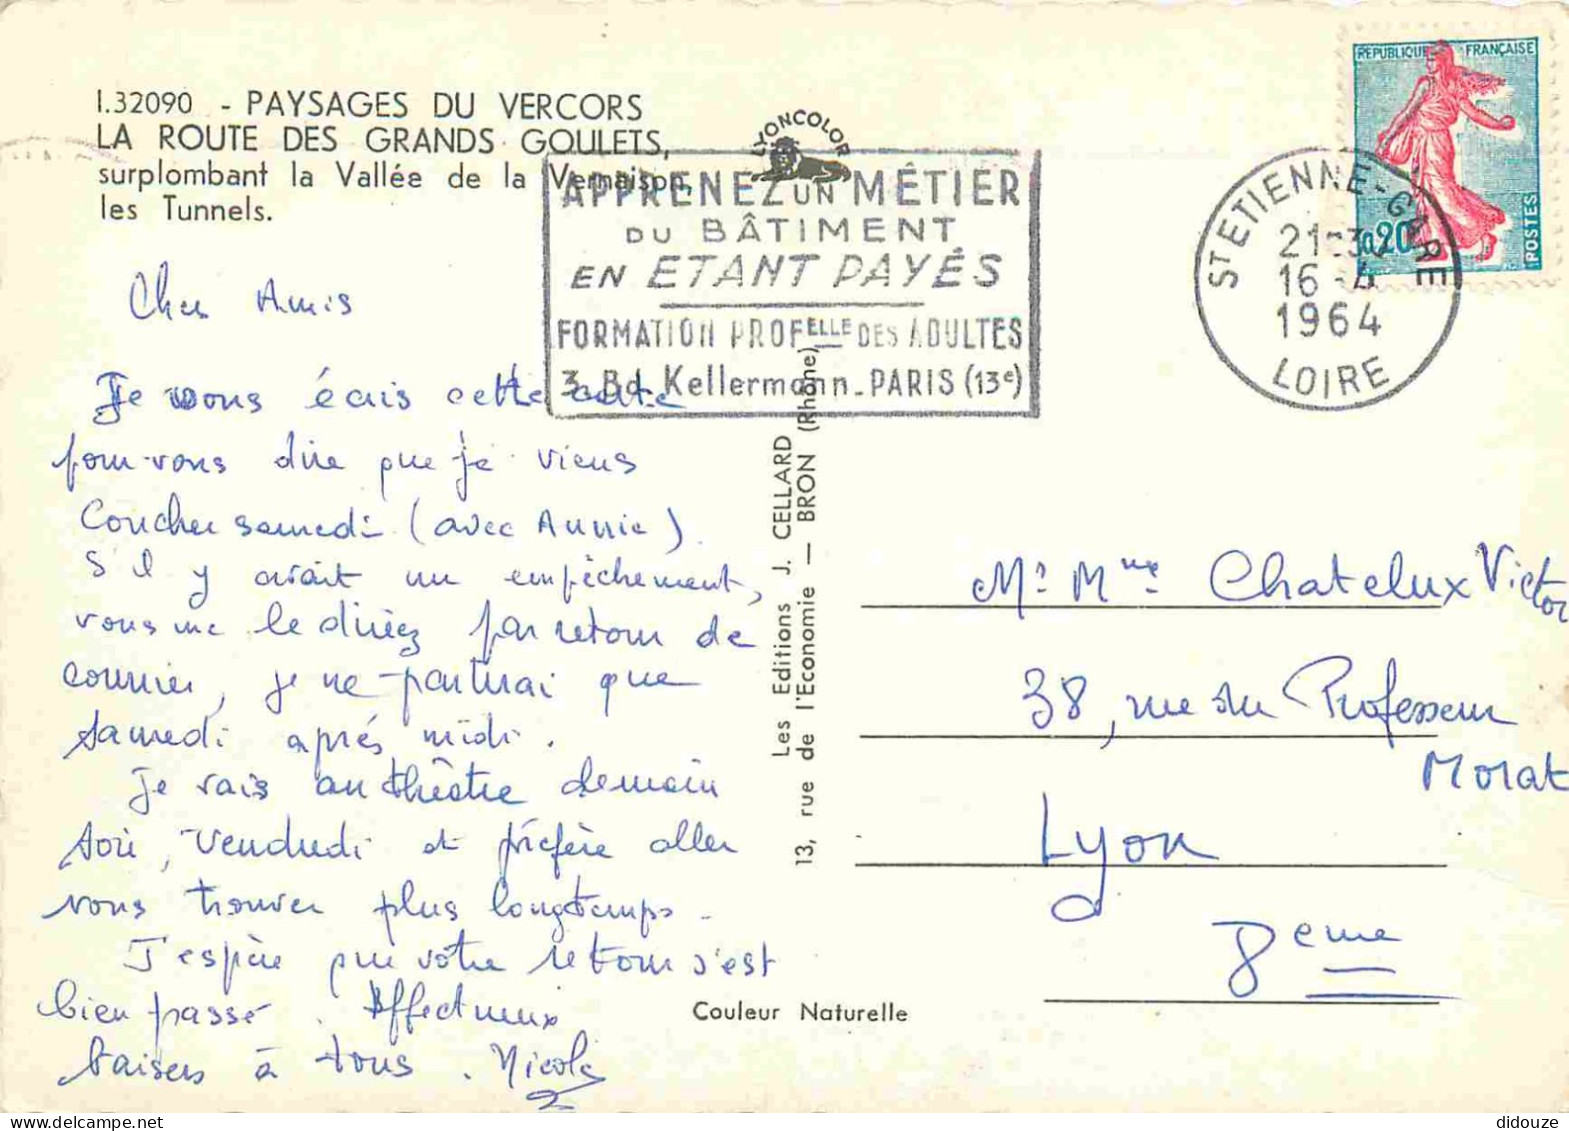 I.32090 - PAYSAGES DU VERCORS
LA ROUTE DES GRANDS GOULETS,
surplombant la Vallée de la Vernaison,
les Tunnels.
LYONCOLOR
APPRENEZ UN MÉTIER
DU BÂTIMENT
EN ETANT PAYÉS
FORMATION PROFELLE DES ADULTES
3, Bd Kellermann - PARIS (13e)
REPUBLIQUE FRANÇAISE
0,20
POSTES
ST ETIENNE-GARE
21H30
16-4
1964
LOIRE
Cher Amis
Je vous écris cette carte
pour vous dire que je viens
coucher samedi (avec Annie).
S'il y avait un empêchement,
vous me le diriez par retour de
courrier, je ne partirai que
samedi après midi.
Je vais au théâtre demain
soir, vendredi et préfère aller
vous trouver plus longtemps.
J'espère que votre retour s'est
bien passé. Affectueux
baisers à tous. Nicole
Les Editions J. CELLARD
13, rue de l'Economie — BRON (Rhône)
Couleur Naturelle
Mr Mme Chatelux Victor
38, rue du Professeur
Morat
Lyon
8eme
didouze